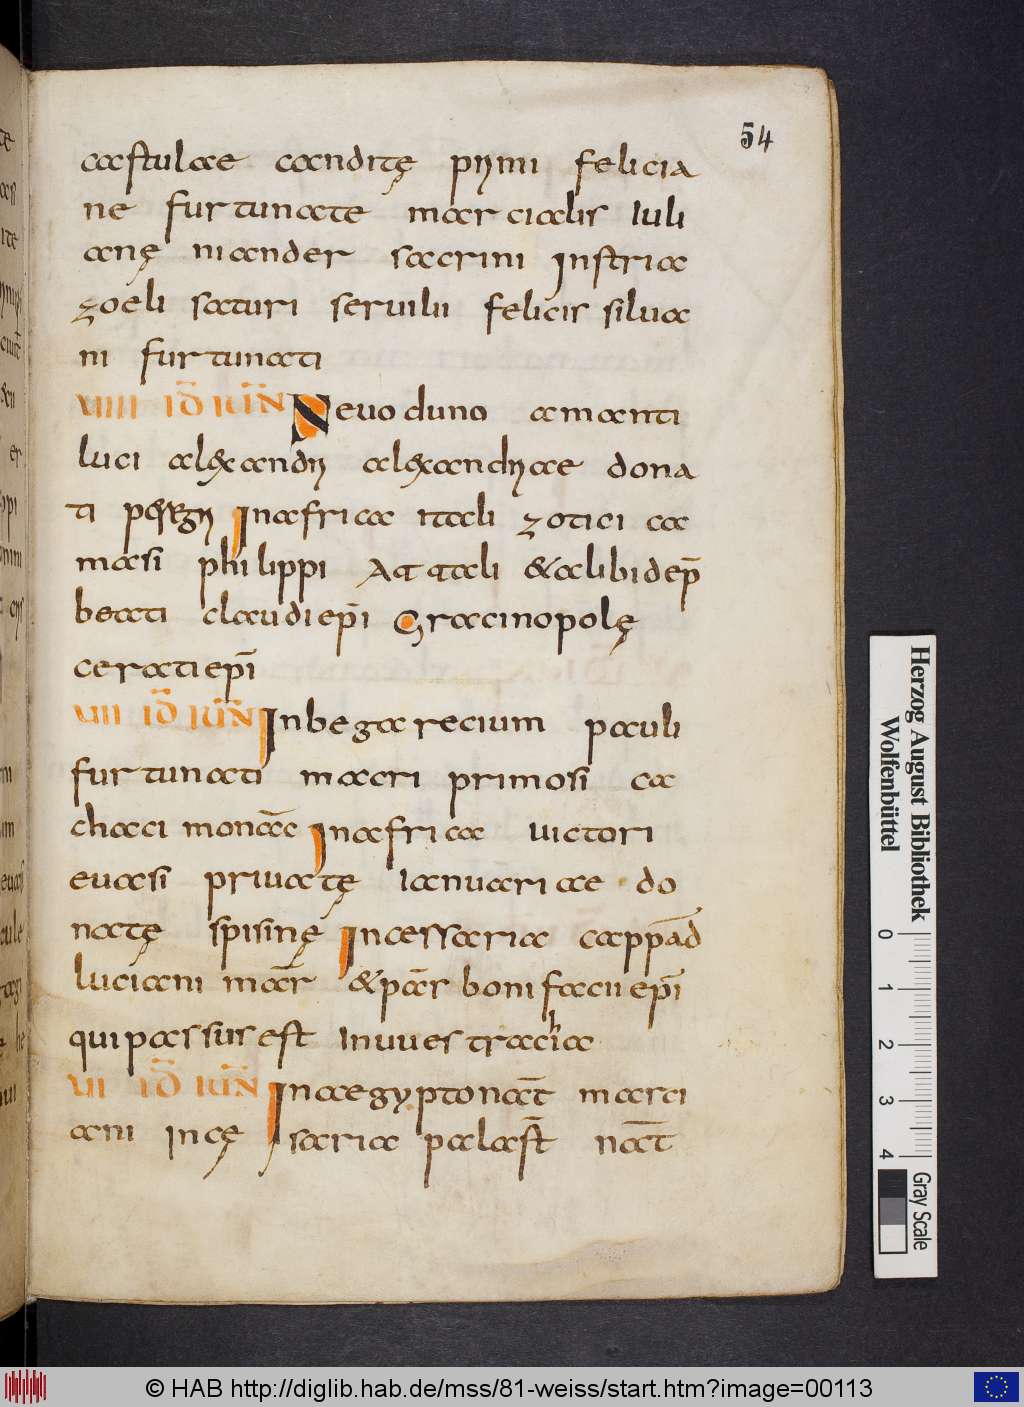 54
castulae canditę primi felicia
ne furtunate marcialis iuli
anę niander sacrini Instria
zoeli saturi seruilii felicis silua
ni furtunati
VIIII ID IUN Neuoduno amanti
luci alexandri alexandriae dona
ti peregri Inafrica itali zotici ca
masi philippi Attali &alibi dep̄
beati claudi ep̄i Gracinopolę
cerati ep̄i
VIII ID IUN Inbegarecium pauli
furtunati macri primosi ca
chaci monac̄ Inafrica uictori
euasi priuatę ianuariae do
natę spisinę Incessaria cappād
luciani mār &pār bonifacii ep̄i
qui passus est Inuuestracħia
VII ID IUN Inaegypto nat̄ marci
ani incę saria palast̄ nat̄
Herzog August Bibliothek
Wolfenbüttel
0 1 2 3 4
Gray Scale
© HAB http://diglib.hab.de/mss/81-weiss/start.htm?image=00113